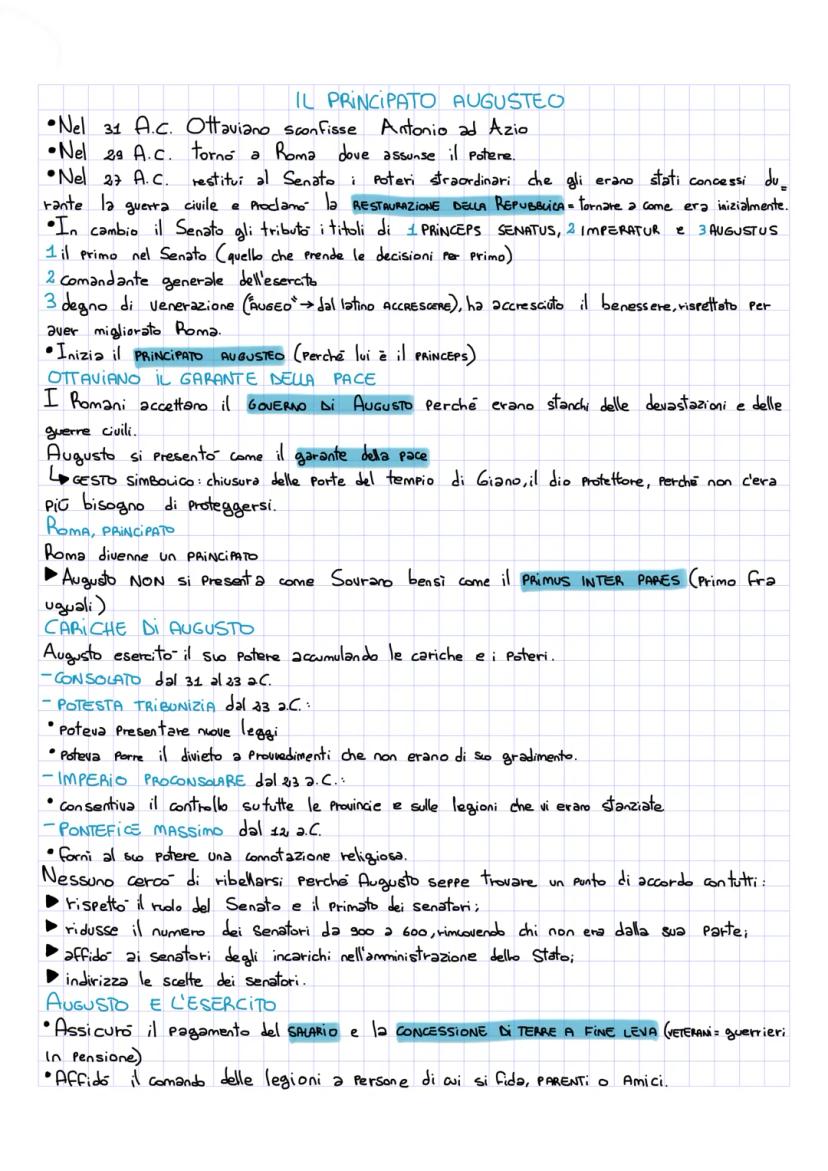 IL PRINCIPATO AUGUSTEO
•Nel 31 A.C. Ottaviano sconfisse Antonio ad Azio
•Nel 29 A.C. tornò a Roma dove assunse il potere.
•Nel 27 A.C. restituì al Senato i poteri straordinari che gli erano stati concessi du=
rante la guerra civile e Proclamò la RESTAURAZIONE DELLA REPUBBLICA = tornare a come era inizialmente.
•In cambio il Senato gli tributò i titoli di 1 PRINCEPS SENATUS, 2 IMPERATUR e 3 AUGUSTUS
1 il primo nel Senato (quello che prende le decisioni per primo)
2 comandante generale dell'esercito
3 degno di venerazione ("AUGEO" → dal latino ACCRESCERE), ha accresciuto il benessere, rispettato per
aver migliorato Roma.
•Inizia il PRINCIPATO AUGUSTEO (perché lui è il PRINCEPS)
OTTAVIANO IL GARANTE DELLA PACE
I Romani accettano il GOVERNO DI AUGUSTO perché erano stanchi delle devastazioni e delle
guerre civili.
Augusto si presentò come il garante dela pace
↳ GESTO SIMBOLICO: chiusura delle porte del tempio di Giano, il dio protettore, perché non c'era
più bisogno di proteggersi.
ROMA, PRINCIPATO
Roma divenne un PRINCIPATO
▶ Augusto NON si presenta come Sovrano bensì come il PRIMUS INTER PARES (Primo fra
uguali)
CARICHE DI AUGUSTO
Augusto esercitò il suo potere accumulando le cariche e i poteri.
- CONSOLATO dal 31 al 23 a.C.
- POTESTA TRIBUNIZIA dal 23 a.C.:
• poteva presentare nuove leggi
• poteva porre il divieto a provvedimenti che non erano di suo gradimento.
- IMPERIO PROCONSOLARE dal 23 a.C.:
• consentiva il controllo su tutte le Provincie e sulle legioni che vi erano stanziate
- PONTEFICE MASSIMO dal 12 a.C.
• fornì al suo potere una connotazione religiosa.
Nessuno cercò di ribellarsi perché Augusto seppe trovare un punto di accordo con tutti:
▶ rispettò il ruolo del Senato e il primato dei senatori;
▶ ridusse il numero dei senatori da 900 a 600, rimuovendo chi non era dalla sua parte;
▶ affidò ai senatori degli incarichi nell'amministrazione dello Stato;
▶ indirizza le scelte dei senatori.
AUGUSTO E L'ESERCITO
• Assicurò il pagamento del SALARIO e la CONCESSIONE DI TERRE A FINE LEVA (VETERANI = guerrieri
in pensione)
• Affidò il comando delle legioni a persone di cui si fida, PARENTI o Amici.